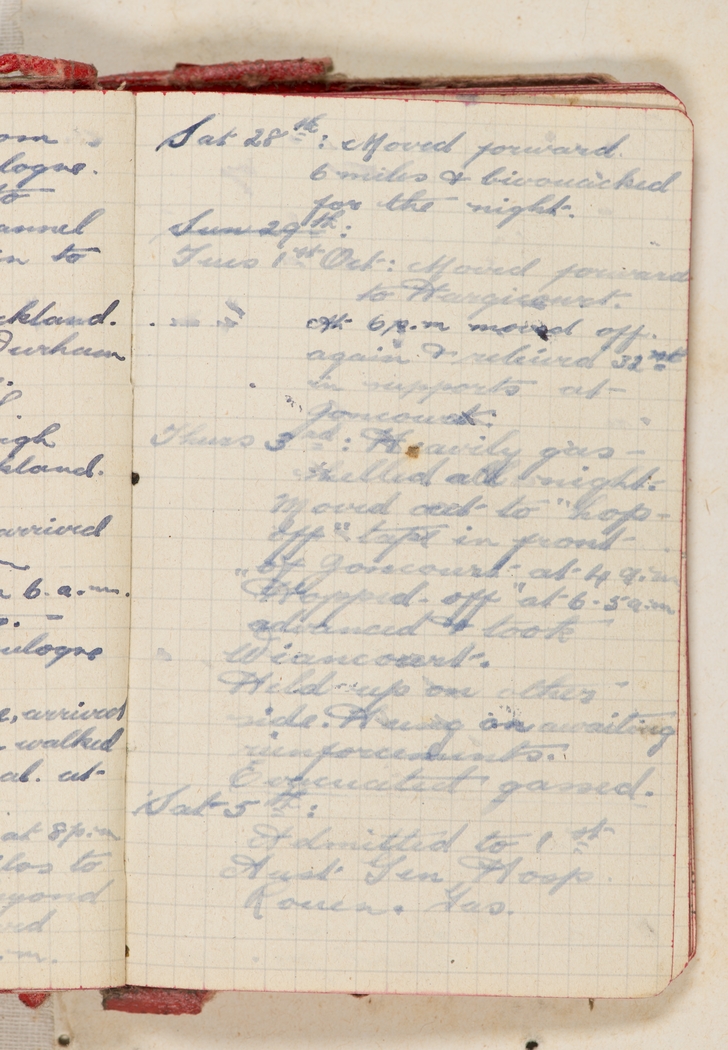 om
logne.
to
annel
in to
ckland.
Durham
igh
kland.
arrived
n 6.a.m.
ulogne
e, arrived
walked
al. at
at 8p.m
los to
yond
ed
.m.
Sat 28th: Moved forward.
6 miles & bivouacked
for the night.
Sun 29th:
Tues 1st Oct: Moved forward
to Hargicourt.
At 6p.m moved off.
again & relieved 32nd
in supports at
Goncourt.
Thurs 3rd: Heavily gas-
shelled all night.
Moved out to "hop-
off" tape in front
of Goncourt at 4 a.m
"Hopped-off" at 6-5 a.m
advanced & took
Wiancourt.
Held up on other
side. Hung on awaiting
reinforcements.
Evacuated gassed.
Sat 5th:
Admitted to 1st
Aust Gen Hosp
Rouen. Gas.